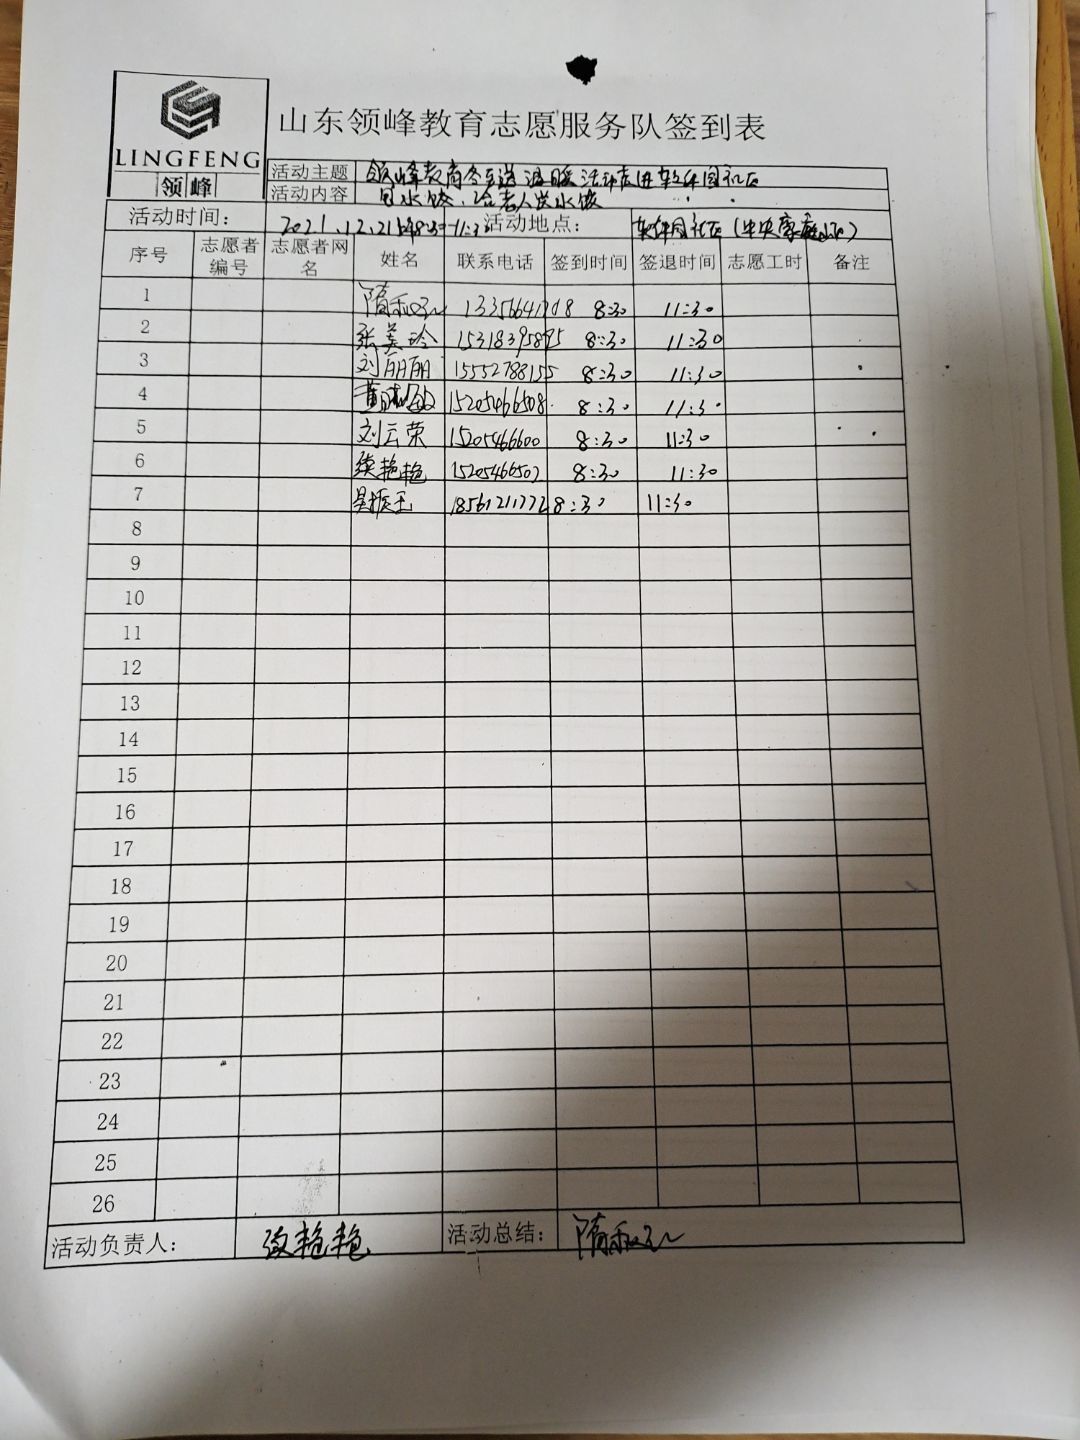 LINGFENG
领峰
山东领峰教育志愿服务队签到表
活动主题 领峰教育冬至送温暖活动走进软件园社区
活动内容 包水饺、给老人送水饺
活动时间： 2021.12.21 8:30-11:30 活动地点： 软件园社区（中央
序号 志愿者编号 志愿者网名 姓名 联系电话 签到时间 签退时间 志愿工时 备注
1 8:30 11:30
2 张美玲 8:30 11:30
3 刘丽丽 15552788155 8:30 11:30
4 15205466508 8:30 11:30
5 刘云荣 15205466600 8:30 11:30
6 艳艳 15205466507 8:30 11:30
7 18561211772 8:30 11:30
8
9
10
11
12
13
14
15
16
17
18
19
20
21
22
23
24
25
26
活动负责人： 艳艳 活动总结：